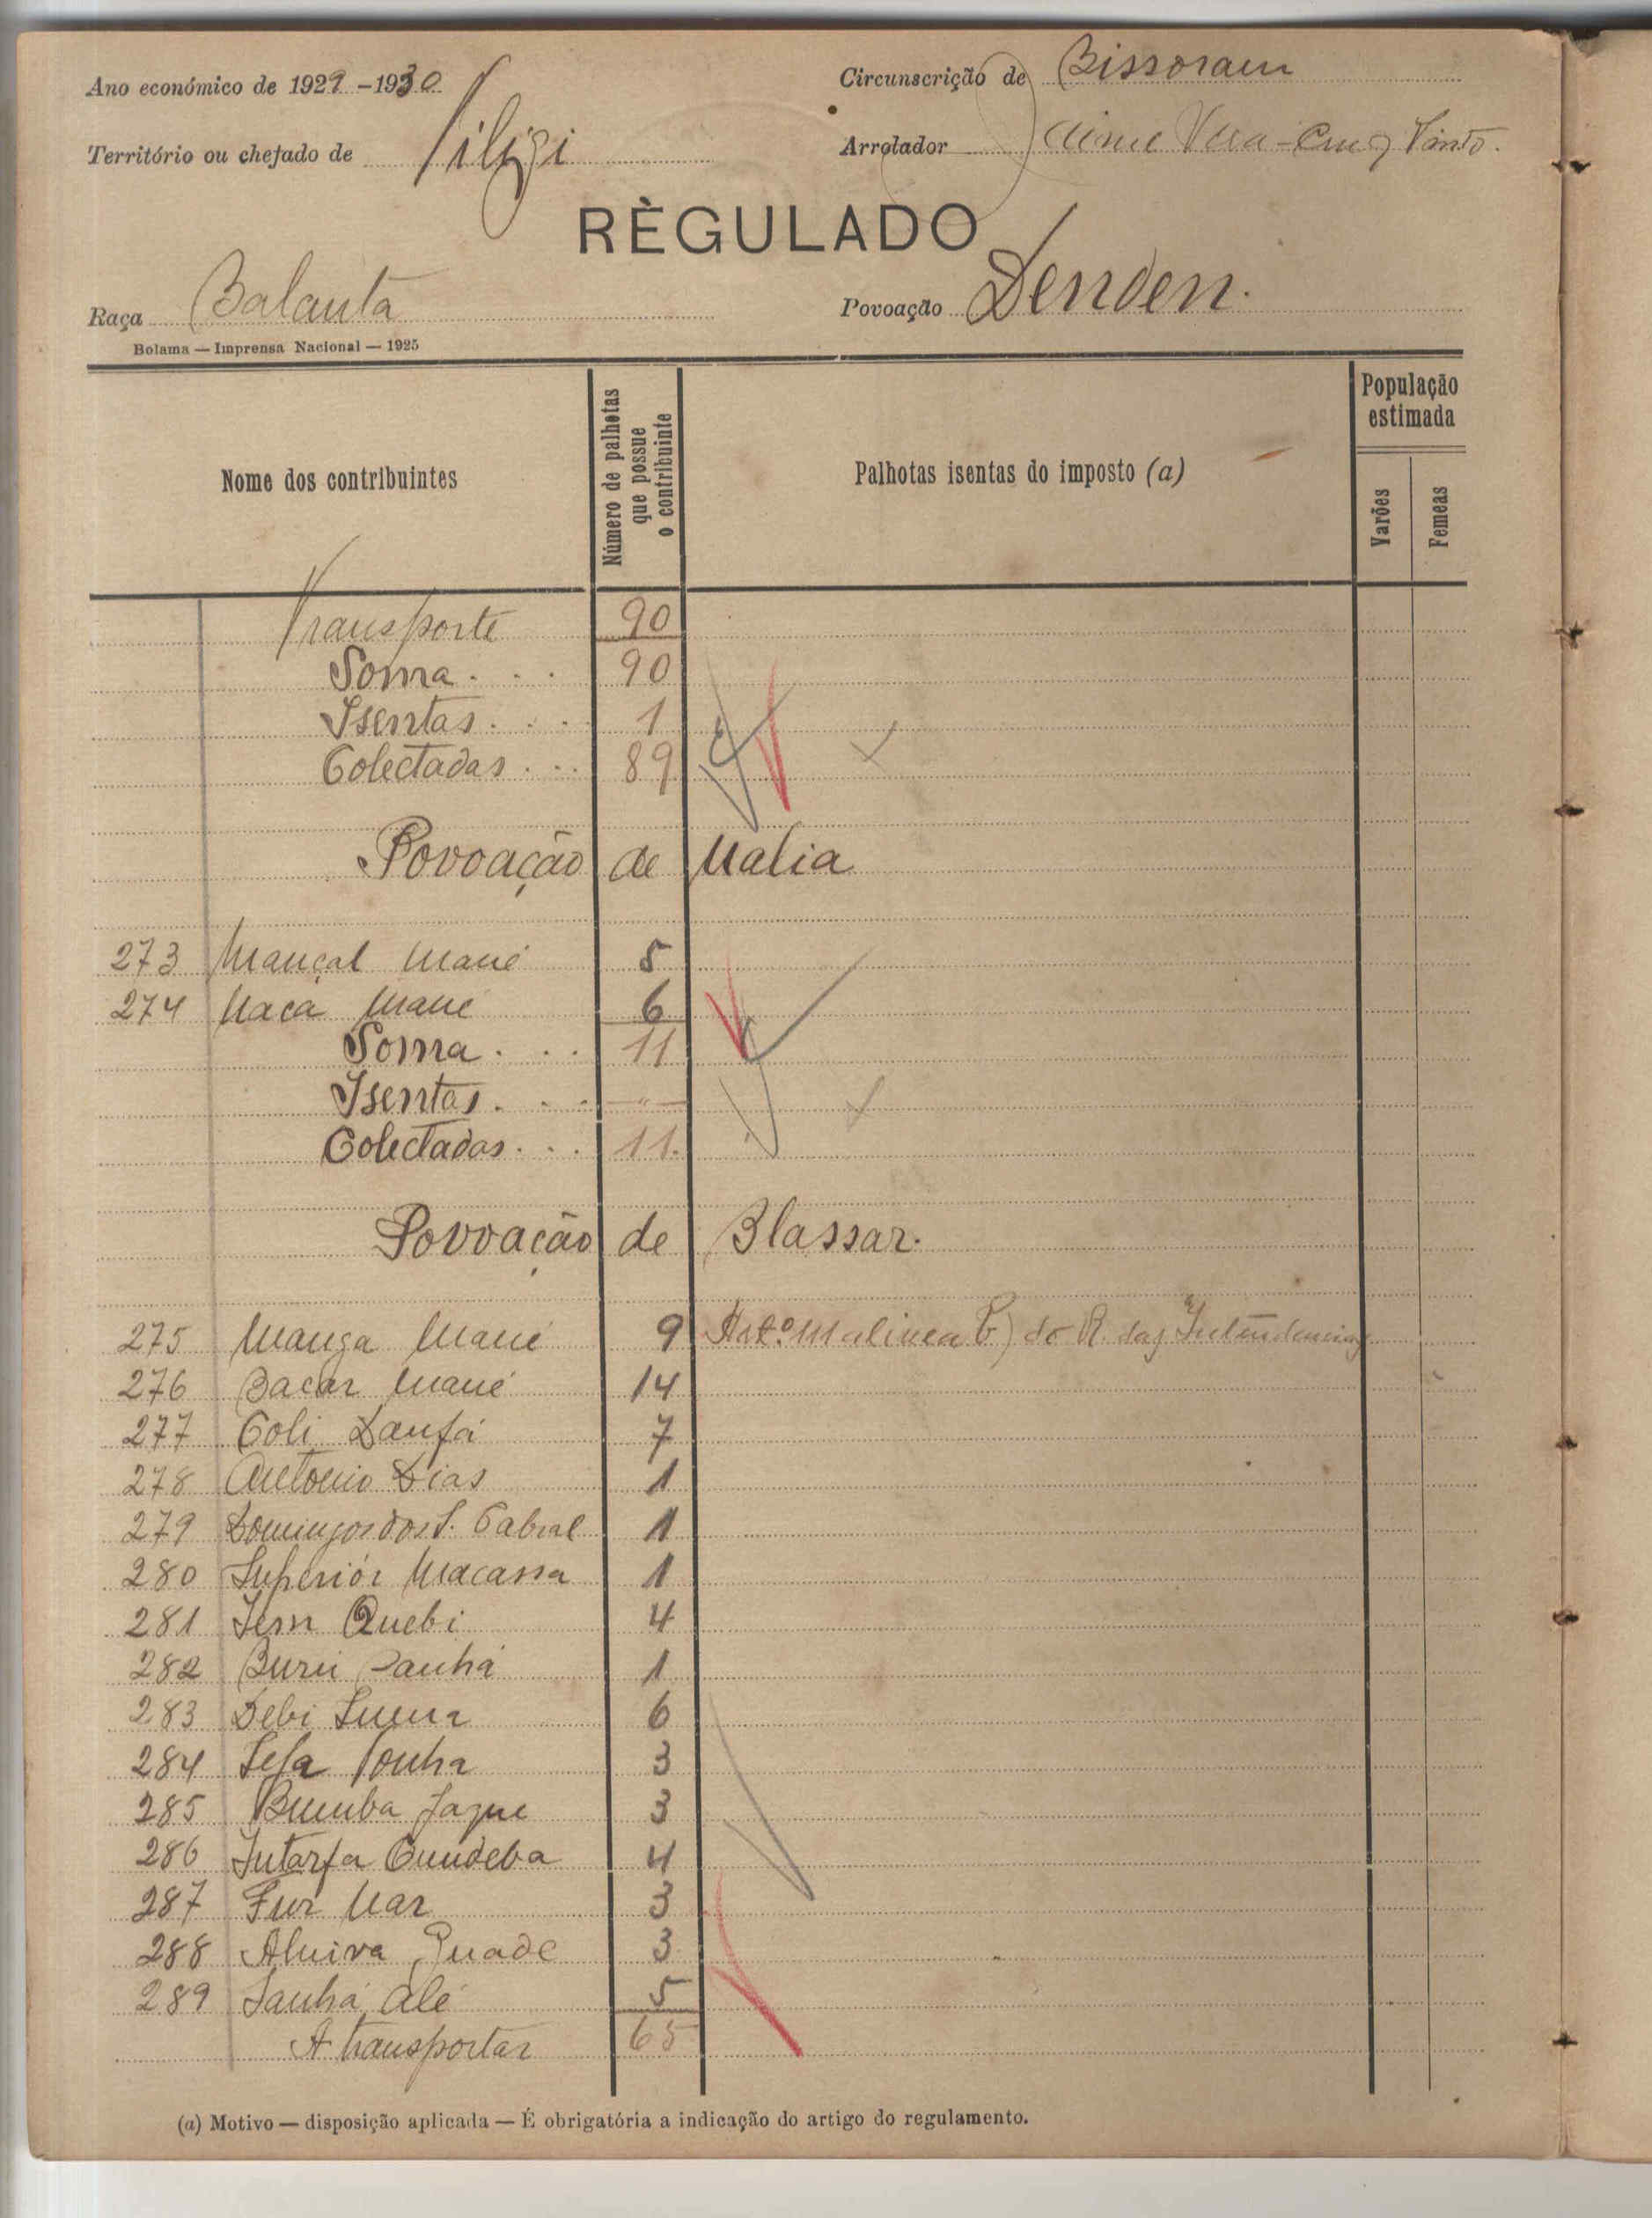 Ano económico de 1929 - 1930
Circunscrição de Bissoram
Território ou chefado de
Arrolador Jaime Vera-Cruz Pinto.
RÈGULADO
Raça Balanta
Povoação Denden.
Bolama — Imprensa Nacional — 1925
Nome dos contribuintes
Número de palhotas que possue o contribuinte
Palhotas isentas do imposto (a)
População estimada
Varões
Femeas
Transporte 90
Soma . . . 90
Isentas . . . 1
Colectadas . . . 89
Povoação de Malia
273 Mançal Mané 5
274 Maca Mané 6
Soma . . . 11
Isentas . . . — " —
Colectadas . . . 11.
Povoação de Blassar.
275 Manga Mané 9 Art.º 11 alinea do R. das Intendencias
276 Bacar Mané 14
277 Coli Danfá 7
278 Antonio Dias 1
279 Domingos dos S. Cabral 1
280 Superiór Macassa 1
281 Sem Quebi 4
282 Burú Sanhá 1
283 Debi 6
284 3
285 Bumba Jague 3
286 Intarfa Cundeba 4
287 Fur Mar 3
288 Quade 3
289 Sanhá Alé 5
A transportar 65
(a) Motivo — disposição aplicada — É obrigatória a indicação do artigo do regulamento.